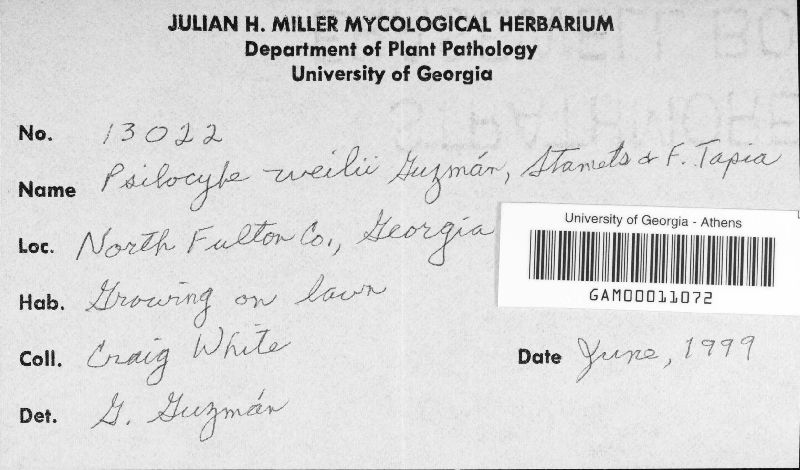 JULIAN H. MILLER MYCOLOGICAL HERBARIUM
Department of Plant Pathology
University of Georgia
No. 13022
Name Psilocybe weilii Guzmán, Stamets & F. Tapia
Loc. North Fulton Co., Georgia
University of Georgia - Athens
GAM00011072
Hab. Growing on lawn
Coll. Craig White Date June, 1999
Det. G. Guzmán